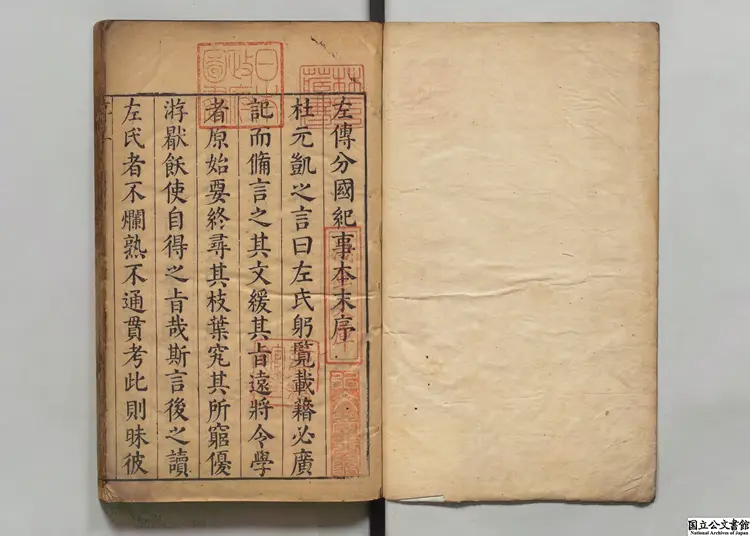 左傳分國紀事本末序
杜元凱之言曰左氏躬覽載籍必廣
記而脩言之其文緩其㫖遠將令學
者原始要終尋其枝葉究其所窮優
游厭飫使自得之㫖哉斯言後之讀
左氏者不爛熟不通貫考此則昧彼
日本政府圖書
国立公文書館
National Archives of Japan